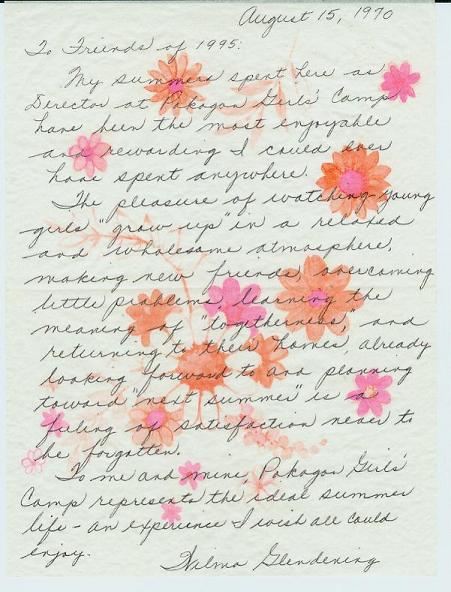 August 15, 1970
To Friends of 1995:
My summers spent here as
Director at Pokagon Girls' Camp
have been the most enjoyable
and rewarding I could ever
have spent anywhere.
The pleasure of watching young
girls "grow up" in a relaxed
and wholesome atmosphere,
making new friends, overcoming
little problems, learning the
meaning of "togetherness," and
returning to their homes, already
looking forward to and planning
toward "next summer" is a
feeling of satisfaction never to
be forgotten.
To me and mine, Pokagon Girls'
Camp represents the ideal summer
life - an experience I wish all could
enjoy.
Wilma Glendening